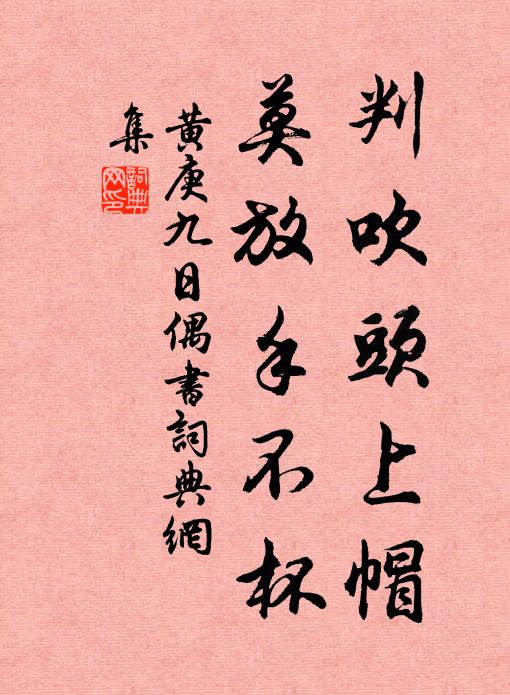 判吹頭上帽
莫放手不杯
黄庚九日偶書詞典網
集
詞典網印